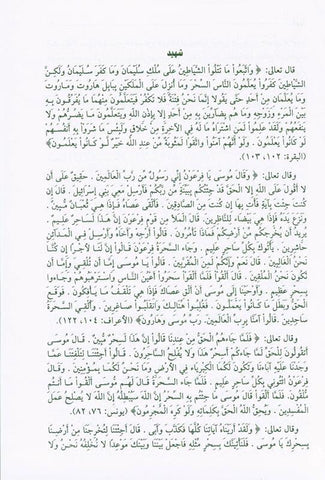 تمهيد
قال تعالى: ﴿ وَاتَّبَعُوا مَا تَتْلُوا الشَّيَاطِينُ عَلَى مُلْكِ سُلَيْمَانَ وَمَا كَفَرَ سُلَيْمَانُ وَلَكِنَّ
الشَّيَاطِينَ كَفَرُوا يُعَلِّمُونَ النَّاسَ السِّحْرَ وَمَا أُنزِلَ عَلَى الْمَلَكَيْنِ بِبَابِلَ هَارُوتَ وَمَارُوتَ
وَمَا يُعَلِّمَانِ مِنْ أَحَدٍ حَتَّى يَقُولا إِنَّمَا نَحْنُ فِتْنَةٌ فَلا تَكْفُرْ فَيَتَعَلَّمُونَ مِنْهُمَا مَا يُفَرِّقُونَ بِهِ
بَيْنَ الْمَرْءِ وَزَوْجِهِ وَمَا هُم بِضَارِّينَ بِهِ مِنْ أَحَدٍ إِلا بِإِذْنِ اللَّهِ وَيَتَعَلَّمُونَ مَا يَضُرُّهُمْ وَلا
يَنفَعُهُمْ وَلَقَدْ عَلِمُوا لَمَنِ اشْتَرَاهُ مَا لَهُ فِي الآخِرَةِ مِنْ خَلاقٍ وَلَبِئْسَ مَا شَرَوْا بِهِ أَنفُسَهُمْ
لَوْ كَانُوا يَعْلَمُونَ . وَلَوْ أَنَّهُمْ آمَنُوا واتَّقَوْا لَمَثُوبَةٌ مِّنْ عِندِ اللَّهِ خَيْرٌ لَّوْ كَانُوا يَعْلَمُونَ﴾
(البقرة: ١٠٢، ١٠٣)
وقال تعالى: ﴿ وَقَالَ مُوسَى يَا فِرْعَوْنُ إِنِّي رَسُولٌ مِّن رَّبِّ الْعَالَمِينَ . حَقِيقٌ عَلَى أَن
لا أَقُولَ عَلَى اللَّهِ إِلا الْحَقَّ قَدْ جِئْتُكُم بِبَيِّنَةٍ مِّن رَّبِّكُمْ فَأَرْسِلْ مَعِيَ بَنِي إِسْرَائِيلَ . قَالَ إِن
كُنتَ جِئْتَ بِآيَةٍ فَأْتِ بِهَا إِن كُنتَ مِنَ الصَّادِقِينَ . فَأَلْقَى عَصَاهُ فَإِذَا هِيَ ثُعْبَانٌ مُّبِينٌ .
وَنَزَعَ يَدَهُ فَإِذَا هِيَ بَيْضَاءُ لِلنَّاظِرِينَ . قَالَ الْمَلأُ مِن قَوْمِ فِرْعَوْنَ إِنَّ هَذَا لَسَاحِرٌ عَلِيمٌ .
يُرِيدُ أَن يُخْرِجَكُم مِّنْ أَرْضِكُمْ فَمَاذَا تَأْمُرُونَ . قَالُوا أَرْجِهْ وَأَخَاهُ وَأَرْسِلْ فِي الْمَدَائِنِ
حَاشِرِينَ . يَأْتُوكَ بِكُلِّ سَاحِرٍ عَلِيمٍ . وَجَاءَ السَّحَرَةُ فِرْعَوْنَ قَالُوا إِنَّ لَنَا لأَجْرًا إِن كُنَّا
نَحْنُ الْغَالِبِينَ . قَالَ نَعَمْ وَإِنَّكُمْ لَمِنَ الْمُقَرَّبِينَ . قَالُوا يَا مُوسَى إِمَّا أَن تُلْقِيَ وَإِمَّا أَن
نَّكُونَ نَحْنُ الْمُلْقِينَ . قَالَ أَلْقُوا فَلَمَّا أَلْقَوْا سَحَرُوا أَعْيُنَ النَّاسِ وَاسْتَرْهَبُوهُمْ وَجَاءُوا
بِسِحْرٍ عَظِيمٍ . وَأَوْحَيْنَا إِلَى مُوسَى أَنْ أَلْقِ عَصَاكَ فَإِذَا هِيَ تَلْقَفُ مَا يَأْفِكُونَ . فَوَقَعَ
الْحَقُّ وَبَطَلَ مَا كَانُوا يَعْمَلُونَ . فَغُلِبُوا هُنَالِكَ وَانقَلَبُوا صَاغِرِينَ . وَأُلْقِيَ السَّحَرَةُ
سَاجِدِينَ . قَالُوا آمَنَّا بِرَبِّ الْعَالَمِينَ. رَبِّ مُوسَى وَهَارُونَ﴾ (الأعراف: ١٠٤، ١٢٢)
وقال تعالى: ﴿ فَلَمَّا جَاءَهُمُ الْحَقُّ مِنْ عِندِنَا قَالُوا إِنَّ هَذَا لَسِحْرٌ مُّبِينٌ . قَالَ مُوسَى
أَتَقُولُونَ لِلْحَقِّ لَمَّا جَاءَكُمْ أَسِحْرٌ هَذَا وَلا يُفْلِحُ السَّاحِرُونَ . قَالُوا أَجِئْتَنَا لِتَلْفِتَنَا عَمَّا
وَجَدْنَا عَلَيْهِ آبَاءَنَا وَتَكُونَ لَكُمَا الْكِبْرِيَاءُ فِي الأَرْضِ وَمَا نَحْنُ لَكُمَا بِمُؤْمِنِينَ . وَقَالَ
فِرْعَوْنُ ائْتُونِي بِكُلِّ سَاحِرٍ عَلِيمٍ . فَلَمَّا جَاءَ السَّحَرَةُ قَالَ لَهُم مُّوسَى أَلْقُوا مَا أَنتُم
مُّلْقُونَ . فَلَمَّا أَلْقَوْا قَالَ مُوسَى مَا جِئْتُم بِهِ السِّحْرُ إِنَّ اللَّهَ سَيُبْطِلُهُ إِنَّ اللَّهَ لا يُصْلِحُ عَمَلَ
الْمُفْسِدِينَ . وَيُحِقُّ اللَّهُ الْحَقَّ بِكَلِمَاتِهِ وَلَوْ كَرِهَ الْمُجْرِمُونَ﴾ (يونس: ٧٦، ٨٢)
وقال تعالى: ﴿ وَلَقَدْ أَرَيْنَاهُ آيَاتِنَا كُلَّهَا فَكَذَّبَ وَأَبَى . قَالَ أَجِئْتَنَا لِتُخْرِجَنَا مِنْ أَرْضِنَا
بِسِحْرِكَ يَا مُوسَى . فَلَنَأْتِيَنَّكَ بِسِحْرٍ مِّثْلِهِ فَاجْعَلْ بَيْنَنَا وَبَيْنَكَ مَوْعِدًا لا نُخْلِفُهُ نَحْنُ وَلا